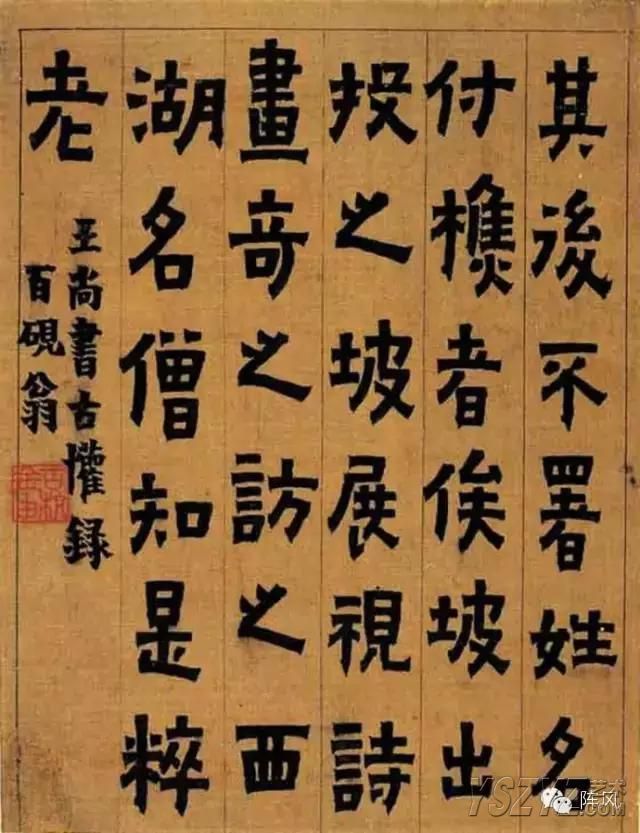 其後不署姓名
付樵者俟坡出
投之坡展視詩
畫奇之訪之西
湖名僧知是粹
老
王尚書古懽錄
百硯翁
阵风